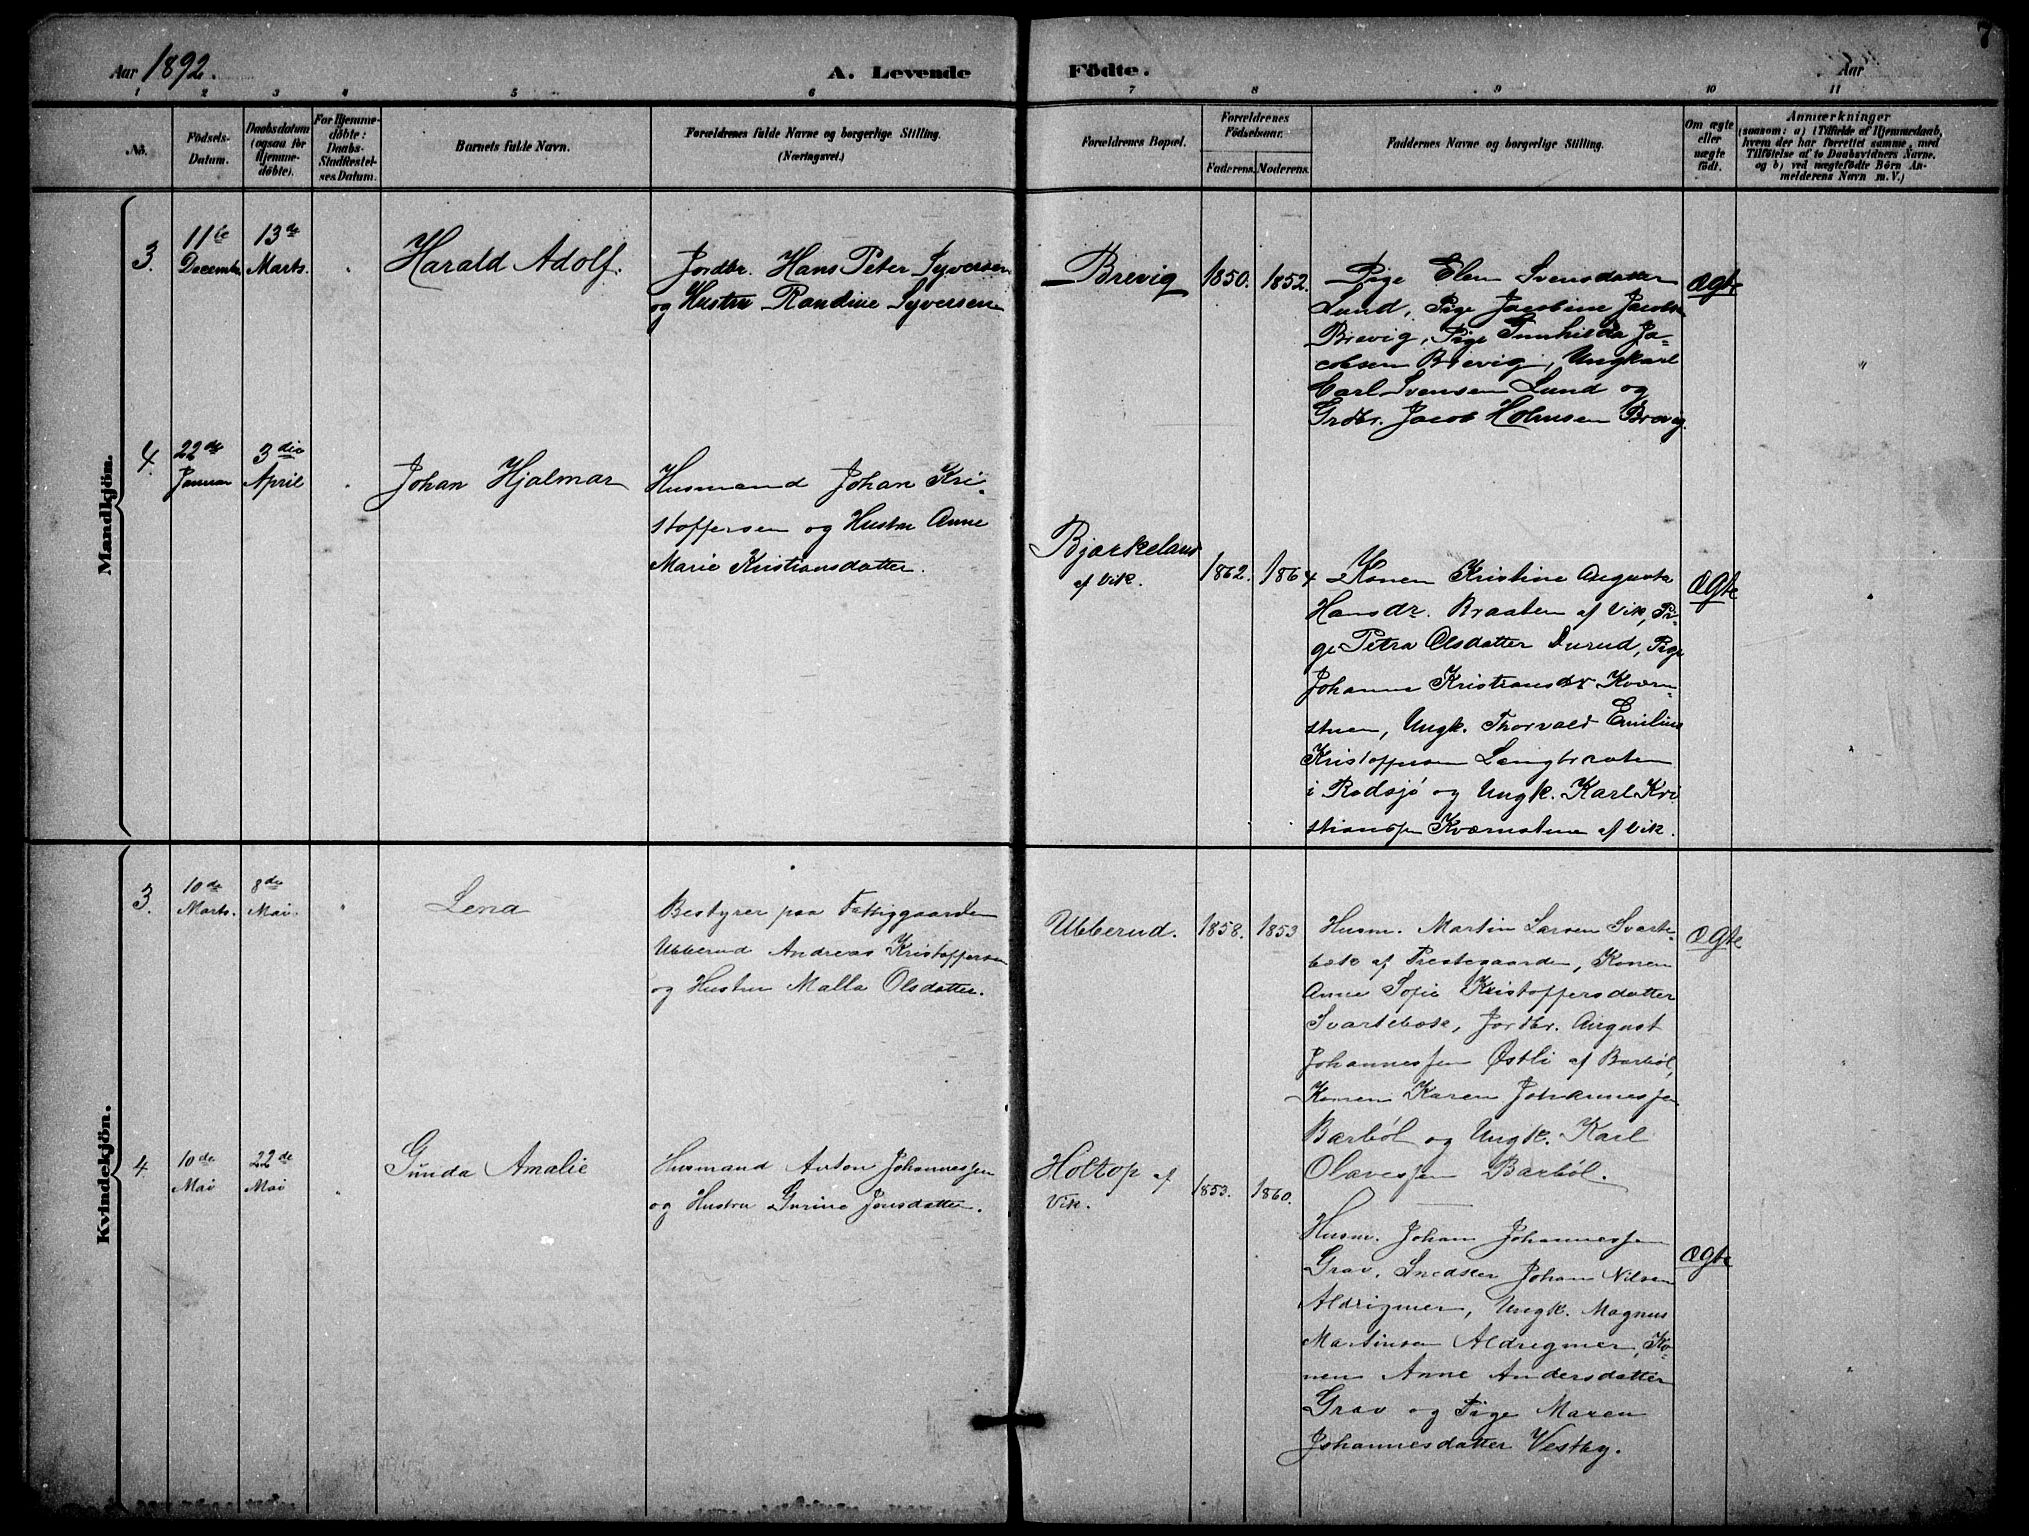 7
Aar 1892.
A. Levende Födte.
Aar
1 2 3 4 5 6 7 8 9 10 11
No.
Födsels-
Datum.
Daabsdatum
(ogsaa for
Hjemme-
döbte).
For Hjemme-
döbte:
Daabs-
Stadfæstel-
ses Datum.
Barnets fulde Navn.
Forældrenes fulde Navne og borgerlige Stilling.
(Næringsvei.)
Forældrenes Bopæl.
Forældrenes
Födselsaar.
Faderens. Moderens.
Faddernes Navne og borgerlige Stilling.
Om ægte
eller
uægte
födt.
Anmærkninger
(saasom: a) i Tilfælde af Hjemmedaab,
hvem der har forrettet samme, med
Tilföielse af to Daabsvidners Navne,
og b) ved uægtefödte Börn An-
melderens Navn m. V.)
Mandkjön.
3.
11te
Decembr
13de
Marts.
Harald Adolf.
Jordbr. Hans Peter Syversen
og Hustru Randine Syversen
Brevig
1850.
1852.
Pige Elen Svensdatter
Lund, Pige Jacobine Jacobs
Brevig, Pige Gunhilda Ja-
cobsen Brevig, Ungkarl
Carl Svensen Lund og
Grdbr. Jacob Holmsen Brevig.
Ægte
4.
22de
Januar
3die
April
Johan Hjalmar
Husmand Johan Kri-
stoffersen og Hustru Anne
Marie Kristiansdatter.
Bjørkeland
af Vik.
1862.
1864
Konen Kristine Augusta
Hansdr. Braaten af Vik, Pi-
ge Petra Olsdatter Durud, Pige
Johanne Kristiansdr Kværn-
stuen, Ungk. Thorvald Emilius
Kristoffersen Langbraaten
i Rødsjø og Ungk. Karl Kri
stiansen Kværnstuen af Vik.
Ægte
Kvindekjön.
3.
10de
Marts.
8de
Mai.
Lena
Bestyrer paa Fattiggaarden
Ubberud Andreas Kristoffersen
og Hustru Malla Olsdatter.
Ubberud.
1858.
1853
Husm. Martin Larsen Svarte-
bæk af Prestegaarden, Konen
Anne Sofie Kristoffersdatter
Svartebæk, Jordbr. August
Johannessen Østli af Barbøl,
Konen Karen Johannessen
Barbøl og Ungk. Karl
Olavessen Barbøl.
Ægte
4.
10de
Mai
22de
Mai
Gunda Amalie
Husmand Anton Johannessen
og Hustru Gurine Jonsdatter.
Holtop af
Vik.
1853.
1860.
Husm. Johan Johannessen
Grav, Snedker Johan Nilsen
Aldrigmer, Ungk. Magnus
Martinsen Aldrigmer, Ko-
nen Anne Andersdatter
Grav og Pige Maren
Johannesdatter Vestby.
Ægte